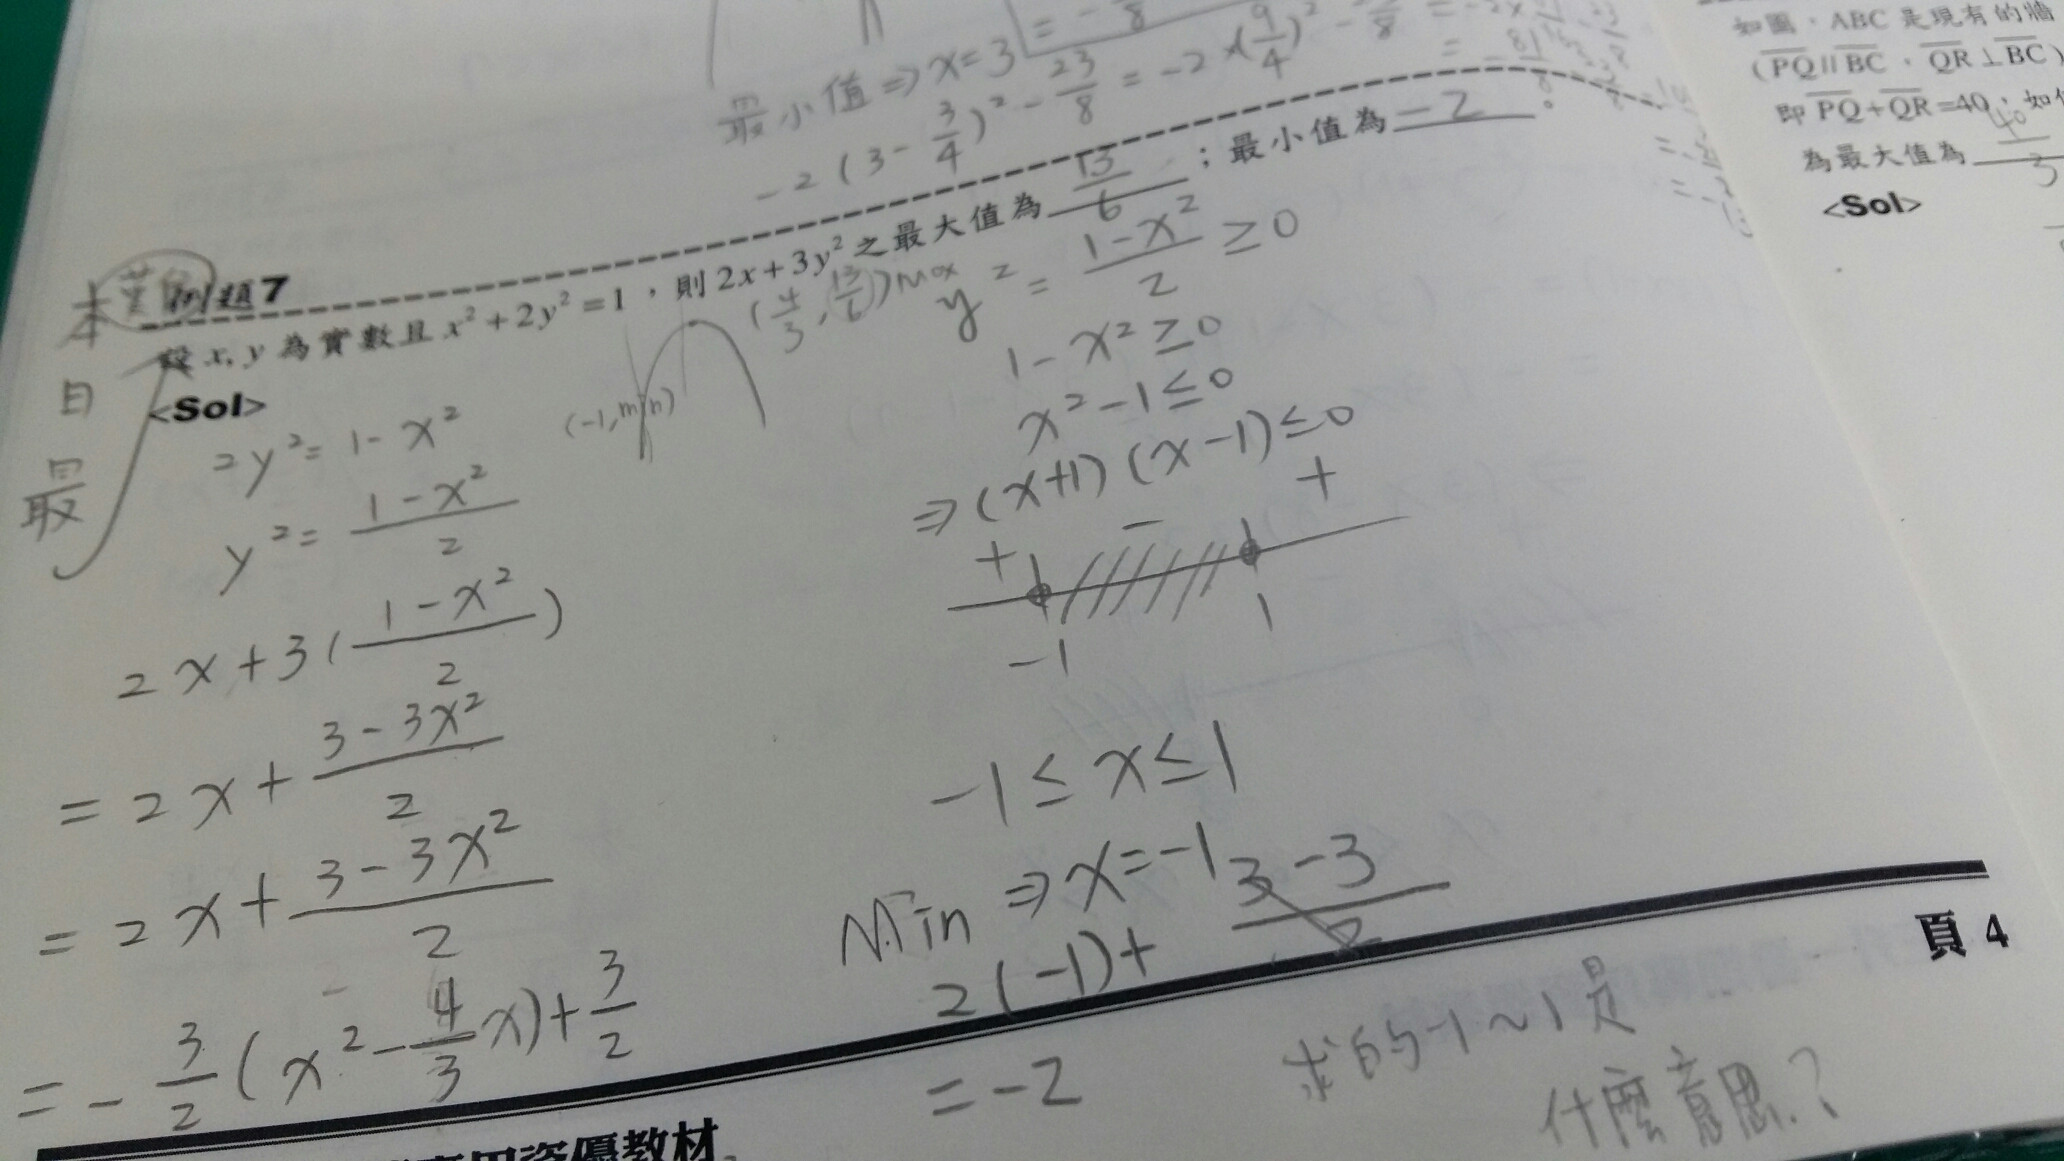 最小值⇒x=3
= -
8
-2(3-3/4)²-23/8=-2×(9/4)²-
例題7
設 x, y 為實數且 x²+2y²=1，則 2x+3y² 之最大值為 13/6 ；最小值為 -2 。
本
日
最
<Sol>
(4/3, 13/6) max
(-1, min)
2y²=1-x²
y²=(1-x²)/2
2x+3((1-x²)/2)
=2x+(3-3x²)/2
=2x+(3-3x²)/2
=-3/2(x²-4/3x)+3/2
y²=(1-x²)/2≥0
1-x²≥0
x²-1≤0
⇒(x+1)(x-1)≤0
+ - +
-1 1
-1≤x≤1
Min⇒x=-1
2(-1)+(3-3)/2
=-2
求的-1~1是
什麼意思?
頁 4
資優教材
如圖，ABC 是現有的牆
(PQ∥BC，QR⊥BC)
即 PQ+QR=40；如
為最大值為 40/3
<Sol>